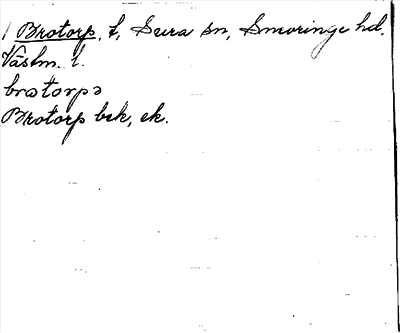 1 Brotorp, t, Sura sn, Snevringe hd,
Västm. l.
brotorpə
Brotorp bek, ek.